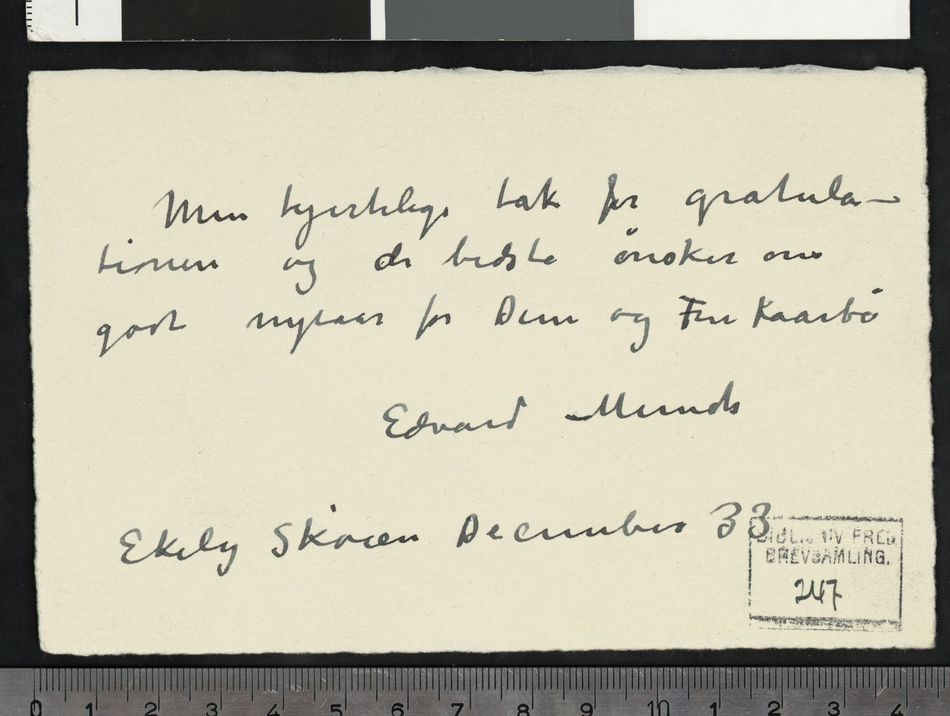 Min hjertelige tak for gratula-
tionen og de bedste ønsker om
godt nytaar for Dem og Fru Kaarbø
Edvard Munch
Ekely Skøien December 33
BREVSAMLING.
247